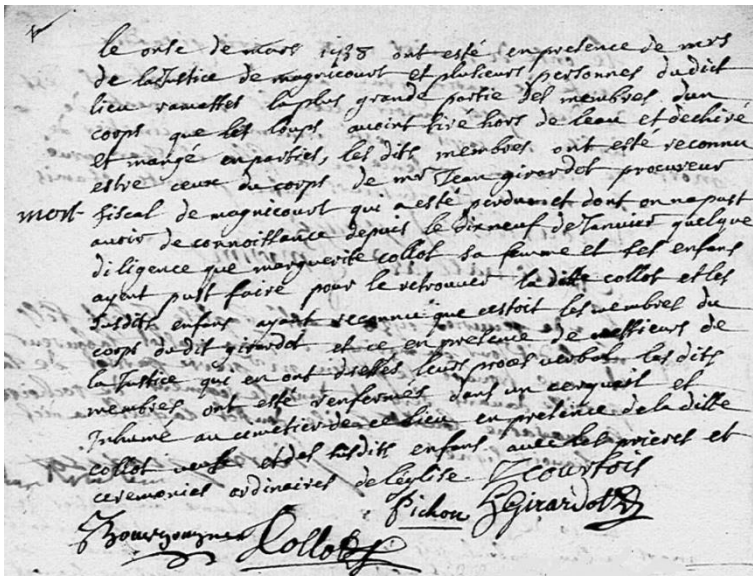 le onse de mars 1738 ont esté en presence de mrs
de la Justice de magnicourt et plusieurs personnes dudict
lieu ramassés la plus grande partie des membres d'un
corps que les loups avoint tiré hors de leau et dechiré
et mangé en parties, les dits membres ont esté reconnu
estre ceux du corps de mr Jean girardot procureur
mort fiscal de magnicourt qui a esté perdu et dont on na pust
avoir de connoissance depuis le dix neuf de Janvier quelque
diligence que marguerite collot sa femme et ses enfans
ayent pust faire pour le retrouver la ditte collot et les
susdits enfans ayant reconnu que cestoit les membres du
corps dudit girardot et ce en presence de messieurs de
la Justice qui en ont dressés leurs proces verbal les dits
membres ont esté renfermés dans un cerqueil et
Inhumé au cemetier de ce lieu en presence de la ditte
collot veufe et des susdits enfans avec les prieres et
ceremonies ordinaires de leglise. Jcourtois
Pichon Girardot
Bourgongne Collot